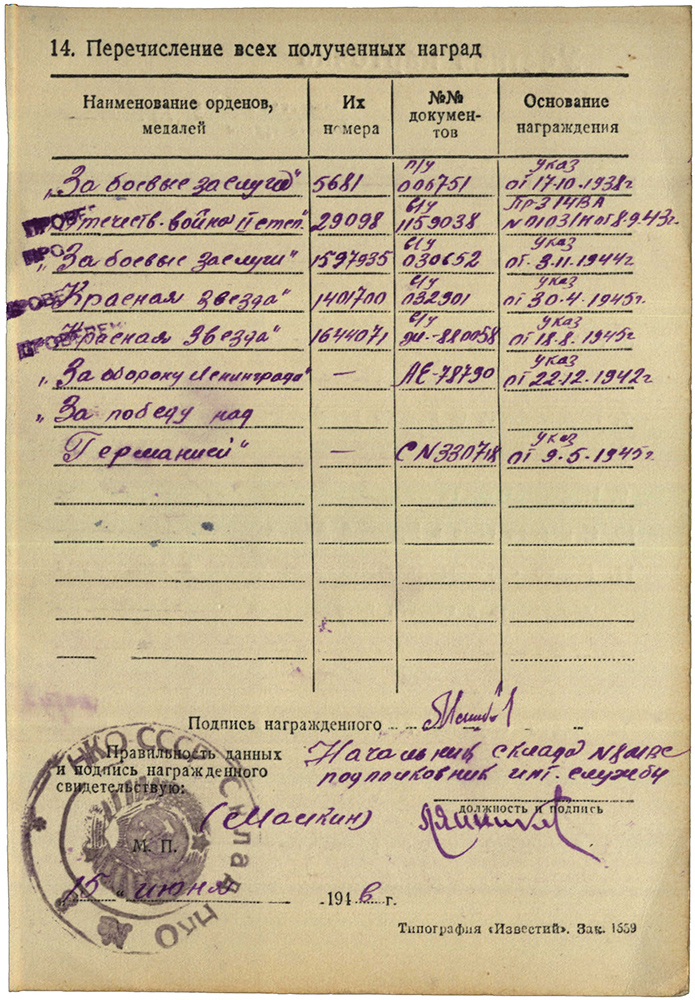 14. Перечисление всех полученных наград
Наименование орденов, медалей
Их номера
№№ документов
Основание награждения
„За боевые заслуги" 5681 п/у 006751 указ от 17-10-1938г
Отечеств. война II степ. 29098 в/у 1159038 Пр-з 14ВА N01031Н от 8.9.43г.
„За боевые заслуги" 1597935 в/у 030652 указ от 3-11-1944г
„Красная звезда" 1401700 в/у 032901 указ от 30-4-1945г
„Красная звезда" 1644071 в/у 880058 указ от 18.8.1945г
„За оборону Ленинграда" — АЕ-78790 указ от 22-12-1942г
„За победу над
Германией" — С N330718 указ от 9-5-1945г
ПРОВЕРЕН
Подпись награжденного
Правильность данных
и подпись награжденного
свидетельствую:
Начальник склада
подполковник инт. службы
должность и подпись
(Маикин)
М. П.
НКО СССР Склад НКО №
„15" июня 1946 г.
Типография «Известий». Зак. 1559